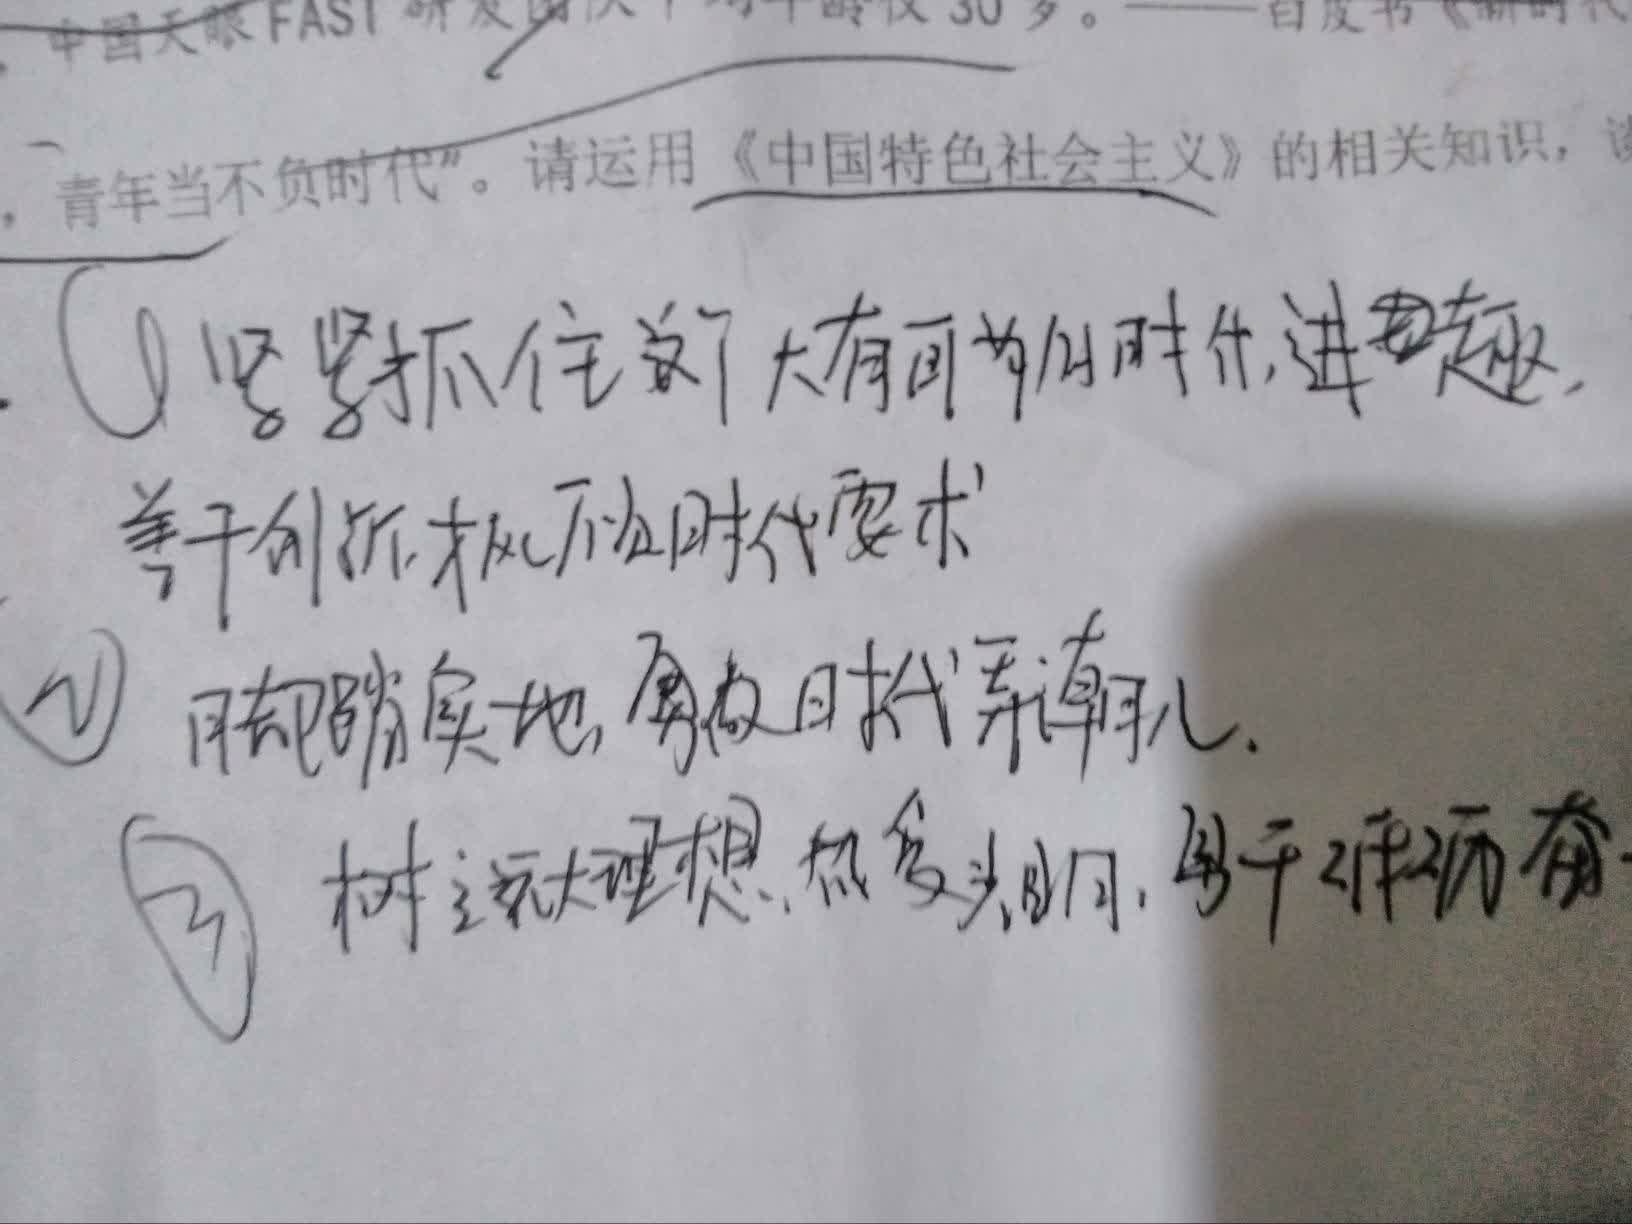 中国天眼FAST研发团队平均年龄仅30岁。——白皮书《新时代
，青年当不负时代”。请运用《中国特色社会主义》的相关知识，谈
① 紧紧抓住这个大有可为的时代，进趣，
善于创新，才不负时代要求
② 脚踏实地，勇做时代弄潮儿.
③ 树立远大理想，热爱，勇于砥砺奋